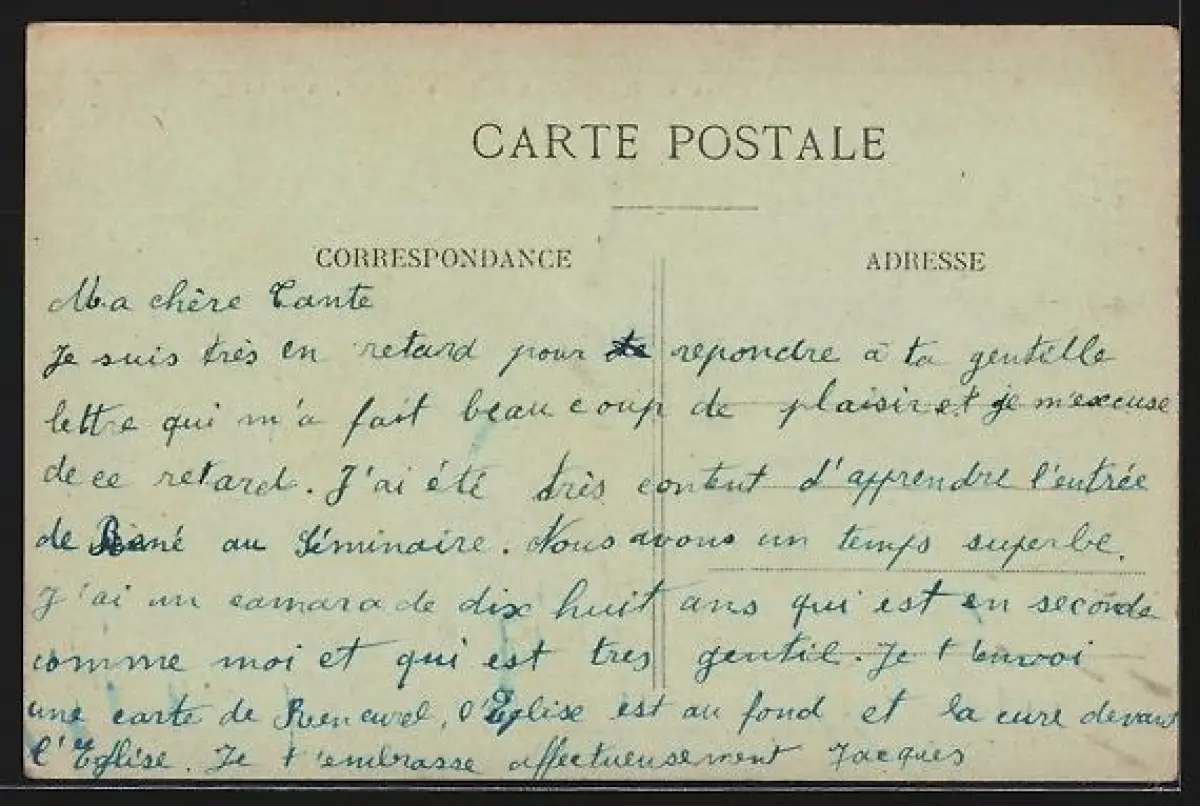 CARTE POSTALE
CORRESPONDANCE
ADRESSE
Ma chère Tante
Je suis très en retard pour repondre à ta gentille
lettre qui m'a fait beaucoup de plaisir et je m'excuse
de ce retard. J'ai été très content d'apprendre l'entrée
de René au Séminaire. Nous avons un temps superbe.
J'ai un camarade dix huit ans qui est en seconde
comme moi et qui est tres gentil. Je t'envoi
une carte de Rencurel, l'Eglise est au fond et la cure devant
l'Eglise. Je t'embrasse affectueusement Jacques